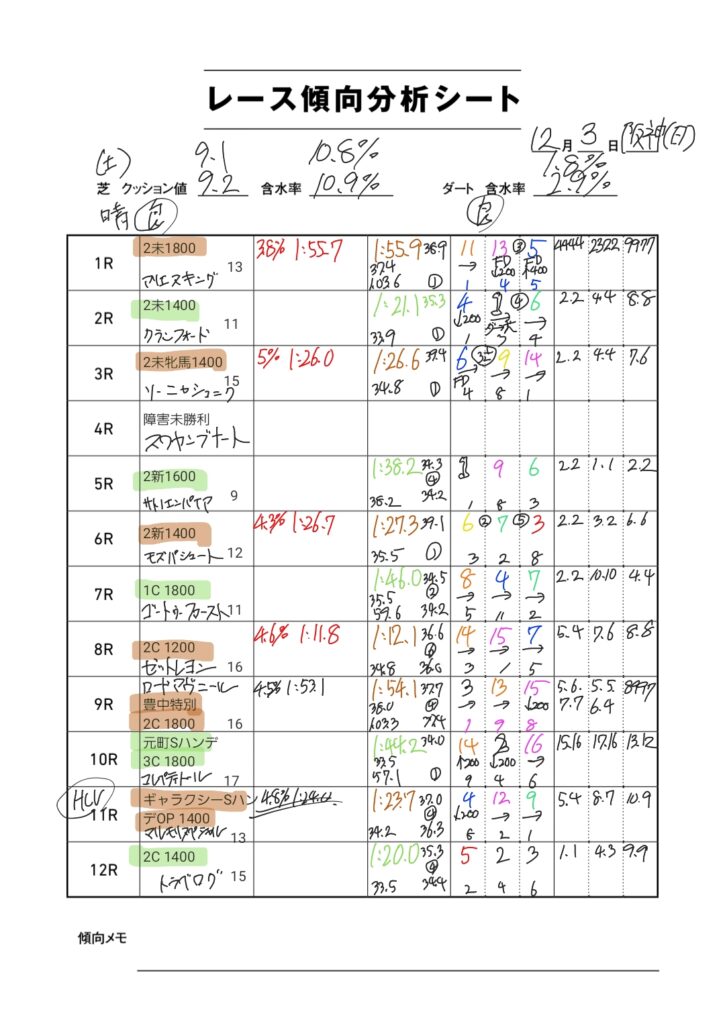 レース傾向分析シート
12月3日 阪神(日)
(土) 9.1 10.8% 1.8%
芝 クッション値 9.2 含水率 10.9% ダート 含水率 2.9%
晴 良 良
1R 2未1800 13 3.8% 1:55.7 1:55.9 38.9 37.4 1:03.6 ① 11 13 ③ 5 4444 2322 9977
→ FD ↓200 FD ↑400
1 4 5
2R 2未1400 クランフォード 11 1:21.1 35.3 33.9 ① 4 ④ 6 2.2 4.4 8.8
↓200 →
1 3 4
3R 2未牝馬1400 ソーニャシュニク 15 5% 1:26.0 1:26.6 37.4 34.8 ① 6 9 14 2.2 4.4 7.6
FD → →
4 8 1
4R 障害未勝利
スワヤンブナート
5R 2新1600 サトノエンパイア 9 1:38.2 34.3 ④ 38.2 34.2 9 6 2.2 1.1 2.2
1 8 3
6R 2新1400 モズパシュート 12 4.3% 1:26.7 1:27.3 39.1 35.5 ① 6 ② 7 ⑤ 3 2.2 3.2 6.6
3 2 8
7R 1C 1800 ゴートゥファースト 11 1:46.0 34.5 ② 35.5 59.6 34.2 8 4 7 2.2 10.10 4.4
→ → →
5 11 2
8R 2C 1200 ゼットレヨン 16 4.6% 1:11.8 1:12.1 36.6 34.8 36.0 14 15 7 5.4 7.6 8.8
→ → →
3 1 5
9R ロードマゼニール
豊中特別
2C 1800 16 4.5% 1:53.1 1:54.1 37.7 38.0 1:03.3 37.4 3 13 15 5.6.7.7 5.5.6.4 8997
→ → ↓200
1 9 8
10R 元町Sハンデ
3C 1800
コレペティトール 17 1:44.2 34.0 33.5 57.1 ① 14 2 16 15.16 17.16 13.12
↑200 ↓200 →
9 4 6
HLV
11R ギャラクシーSハン
デOP 1400
13 4.8% 1:23.7 37.0 34.2 36.3 4 12 9 5.4 8.7 10.9
↓200 → →
6 2 1
12R 2C 1400 トラベログ 15 1:20.0 35.3 33.5 34.4 5 2 3 1.1 4.3 9.9
2 4 6
傾向メモ